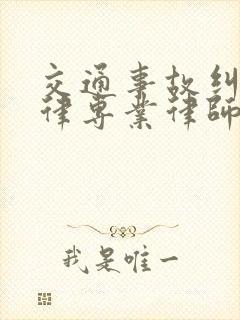 交通事故纠
律专业律师
我是唯一